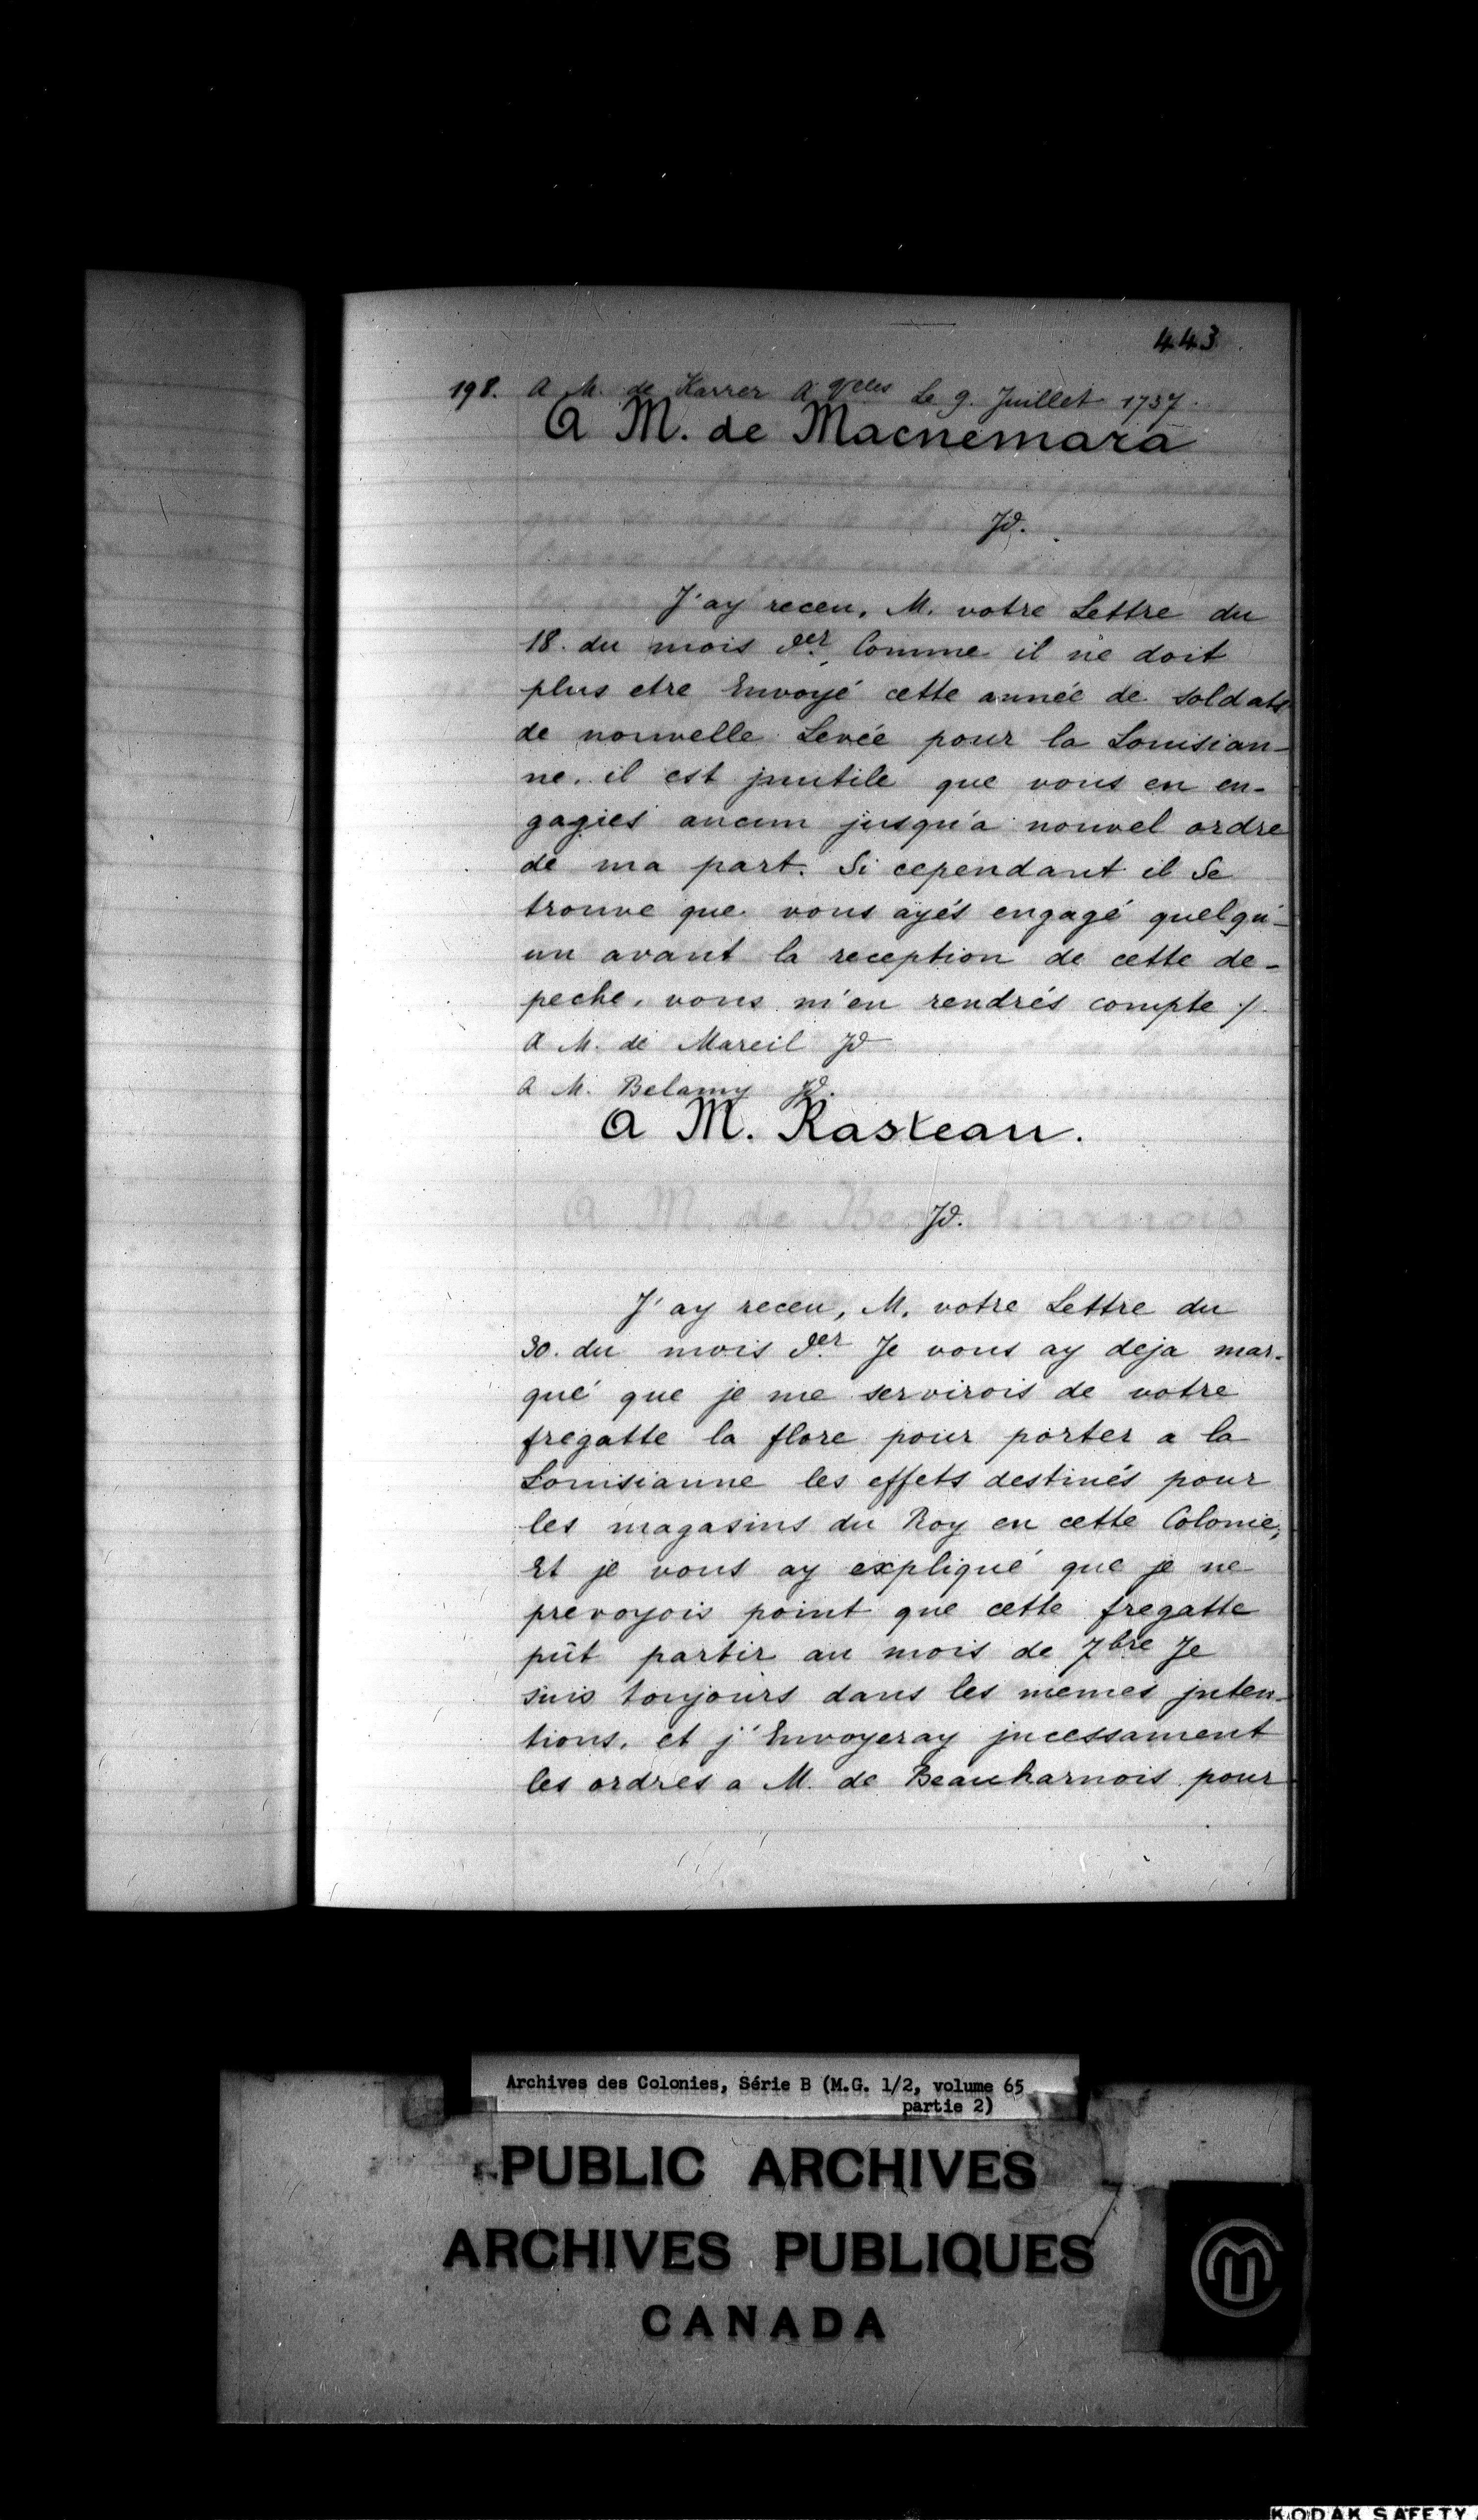 443
198. A M. de Karrer A Vles Le 9. Juillet 1737.
A M. de Macnemara
Jd.
J'ay receu, M. votre Lettre du
18. du mois der. Comme il ne doit
plus etre Envoyé cette année de soldats
de nouvelle Levée pour la Louisian-
ne, il est jnutile que vous en en-
gagiés aucun jusqu'a nouvel ordre
de ma part. Si cependant il Se
trouve que vous ayés engagé quelqu'-
un avant la reception de cette de-
peche, vous m'en rendrés compte ./.
A M. de Mareil Jd
A M. Belamy Jd.
A M. Rasteau.
Jd.
J'ay receu, M. votre Lettre du
30. du mois der. Je vous ay deja mar-
qué que je me servirois de votre
fregatte la flore pour porter a la
Louisianne les effets destinés pour
les magasins du Roy en cette Colonie;
Et je vous ay expliqué que je ne
prevoyois point que cette fregatte
pût partir au mois de 7bre Je
suis toujours dans les memes jnten-
tions, et j'Envoyeray jncessament
les ordres a M. de Beauharnois pour
Archives des Colonies, Série B (M.G. 1/2, volume 65
partie 2)
PUBLIC ARCHIVES
ARCHIVES PUBLIQUES
CANADA
KODAK SAFETY